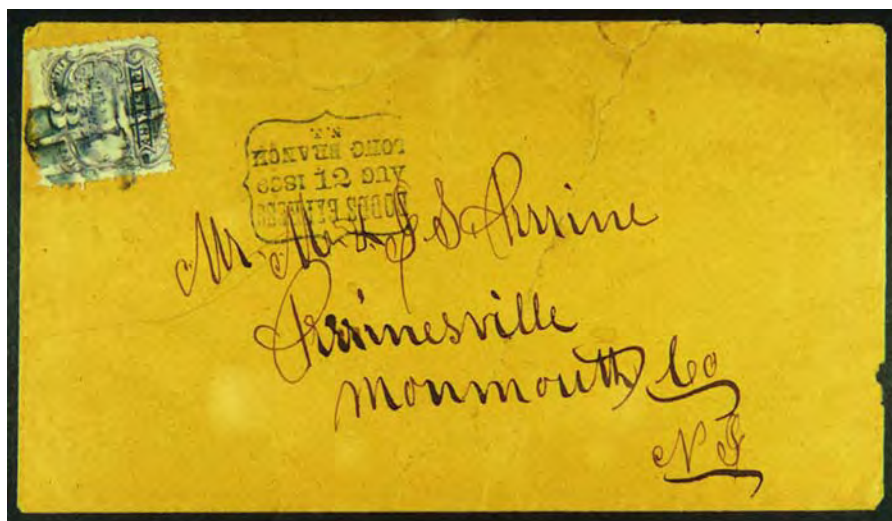 POSTAGE
DODDS EXPRESS
AUG 21 1869
LONG BRANCH
N.J.
Mr. S. Perrine
Perrinesville
Monmouth Co
N J